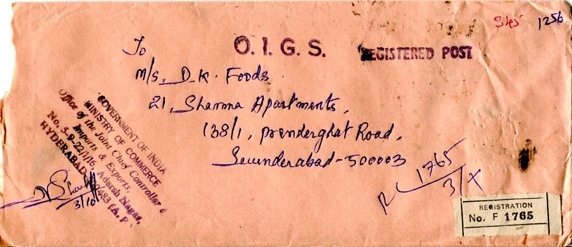 3185 1256
O. I. G. S.
REGISTERED POST
To
M/s. D.K. Foods.
21, Sharma Apartments,
138/1, Prenderghat Road,
Secunderabad-500003
GOVERNMENT OF INDIA
MINISTRY OF COMMERCE
Office of the Joint Chief Controller of
Imports & Exports,
Adarsh Nagar,
HYDERABAD
3/10
R 1765
3/X
REGISTRATION
No. F 1765